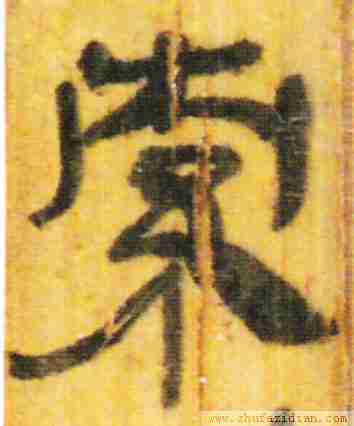 索
www.shufazidian.com